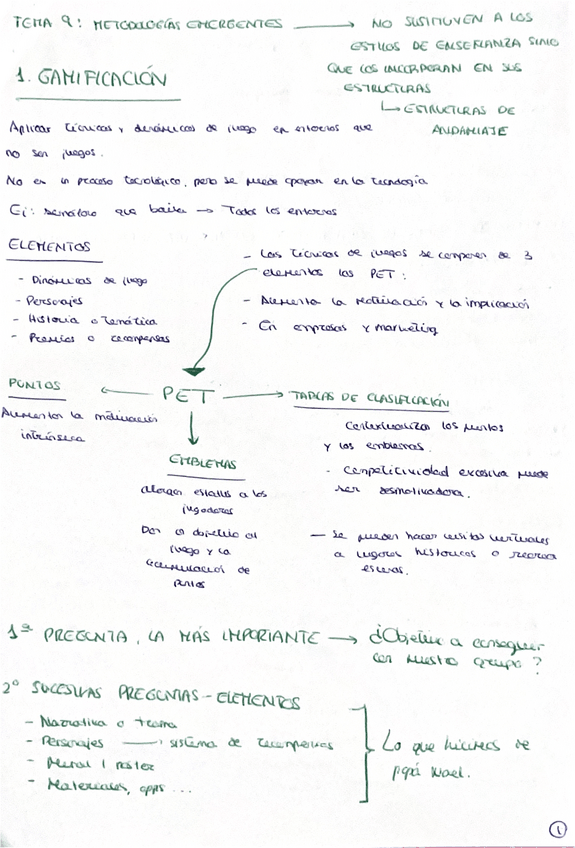 TEMA 9: METODOLOGÍAS EMERGENTES → NO SUSTITUYEN A LOS
ESTILOS DE ENSEÑANZA SINO
QUE LOS INCORPORAN EN SUS
ESTRUCTURAS
↳ ESTRUCTURAS DE
ANDAMIAJE
1. GAMIFICACIÓN
Aplicar técnicas y dinámicas de juego en entornos que
no son juegos.
No es un proceso tecnológico, pero se puede apoyar en la tecnología
Ej: semáforo que baila → Todos los entornos
ELEMENTOS
- Dinámicas de juego
- Personajes
- Historia o temática
- Premios o recompensas
- Las técnicas de juegos se componen de 3
elementos los PET:
- Aumenta la motivación y la implicación
- En empresas y marketing
PUNTOS ← PET → TABLAS DE CLASIFICACIÓN
Aumentan la motivación
intrínseca
EMBLEMAS
Otorgan estatus a los
jugadores
Dan un objetivo al
juego y la
acumulación de
puntos
Contextualizan los puntos
y los emblemas.
- Competitividad excesiva puede
ser desmotivadora.
- Se pueden hacer visitas virtuales
a lugares históricos o recrear
escenas.
1ª PREGUNTA, LA MÁS IMPORTANTE → ¿Objetivo a conseguir
con nuestro grupo?
2º SUCESIVAS PREGUNTAS - ELEMENTOS
- Narrativa o trama
- Personajes → sistema de recompensas
- Mural / póster
- Materiales, apps ...
Lo que hicimos de
papá Noel.
1